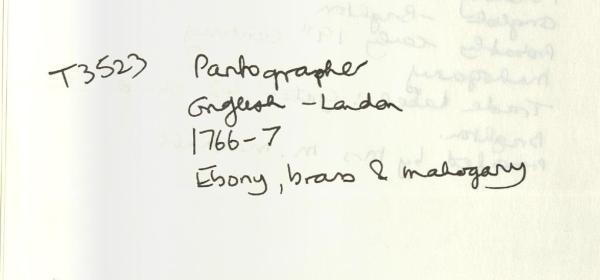 T3523 Pantographer
English - London
1766-7
Ebony, brass & mahogany